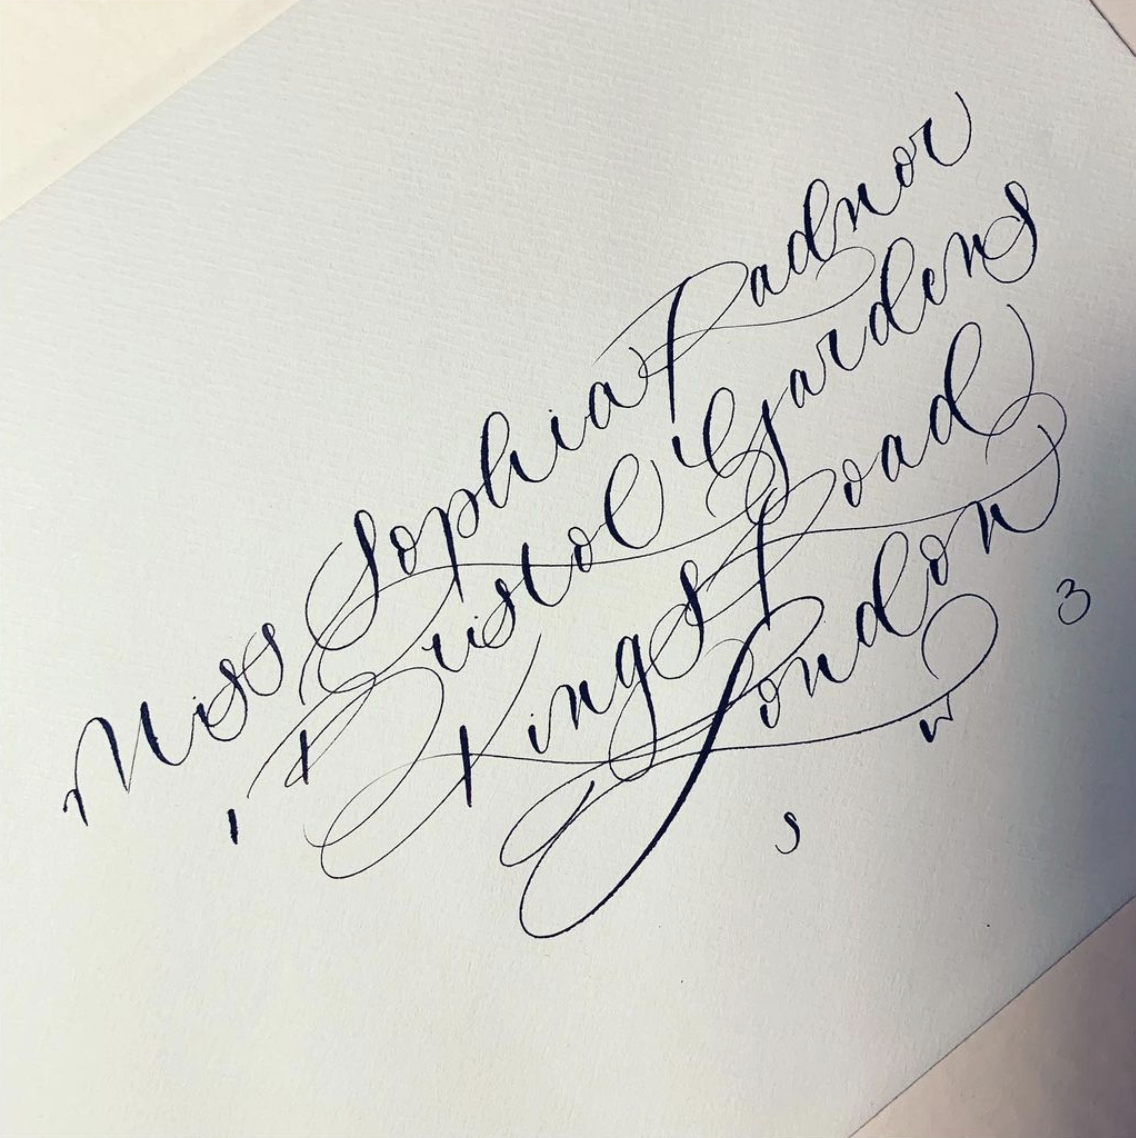 Miss Sophia Radnor
1 Bristol Gardens
Kings Road
London
S W 3